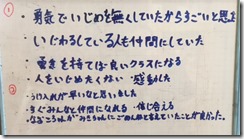 ① ・勇気でいじめを無くしていたからすごいと思
・いじわるしている人も仲間にしていた
・勇きを持てば良いクラスになる
② ・人をいじめたくない ・感動した
・うけ入れが早いなと思いました
・すぐみんなと仲間になれる ・信じ合える
・なおころんが みこちゃんにごめんねを言えていたことが良かった。